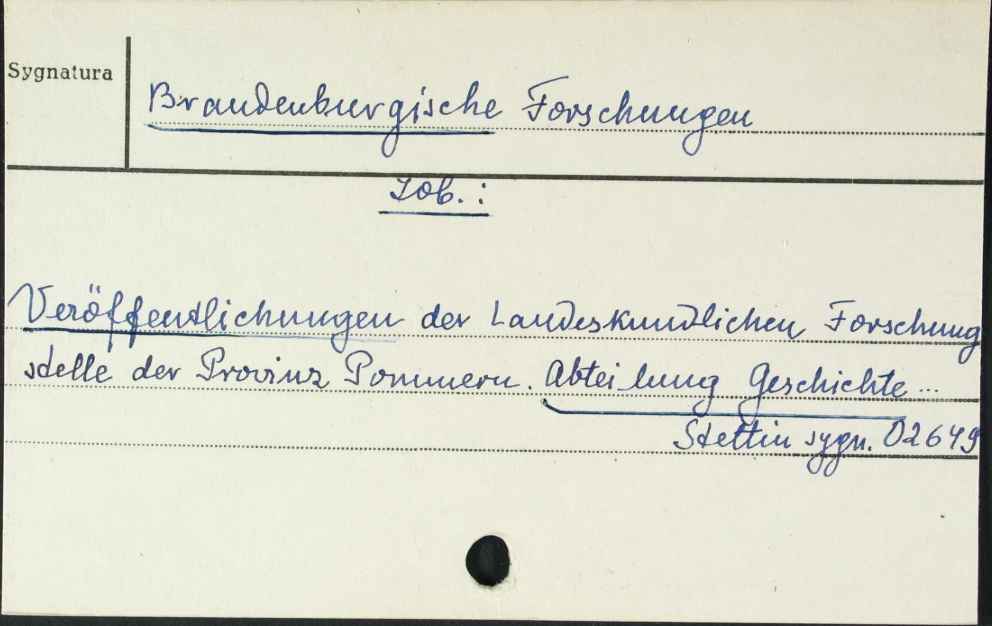 Sygnatura
Brandenburgische Forschungen
Zob. :
Veröffentlichungen der Landeskundlichen Forschung
stelle der Provinz Pommern. Abteilung Geschichte ...
Stettin sygn. 02649